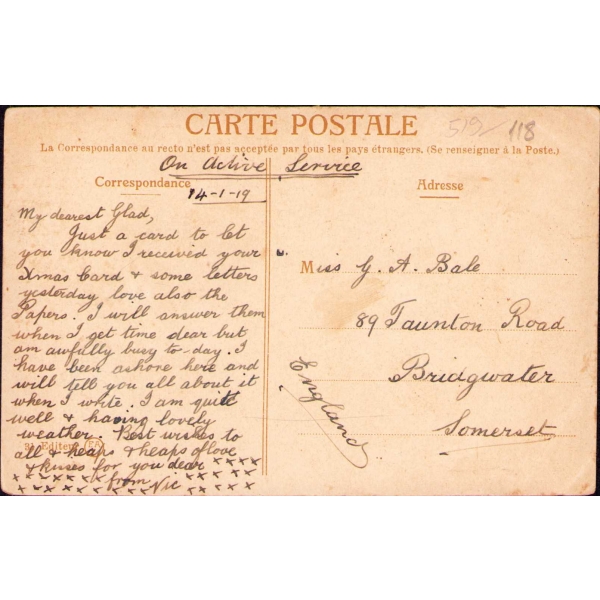 CARTE POSTALE
519/ 118
La Correspondance au recto n'est pas acceptée par tous les pays étrangers. (Se renseigner à la Poste.)
On Active Service
Correspondance
14-1-19
My dearest Glad,
Just a card to let
you know I received your
Xmas Card & some letters
yesterday love also the
Papers. I will answer them
when I get time dear but
am awfully busy to-day. I
have been ashore here and
will tell you all about it
when I write. I am quite
well & having lovely
weather. Best wishes to
Editeur
all & heaps & heaps of love
& kisses for you dear
from Vic
Adresse
Miss G. A. Bale
89 Taunton Road
Bridgwater
Somerset
England